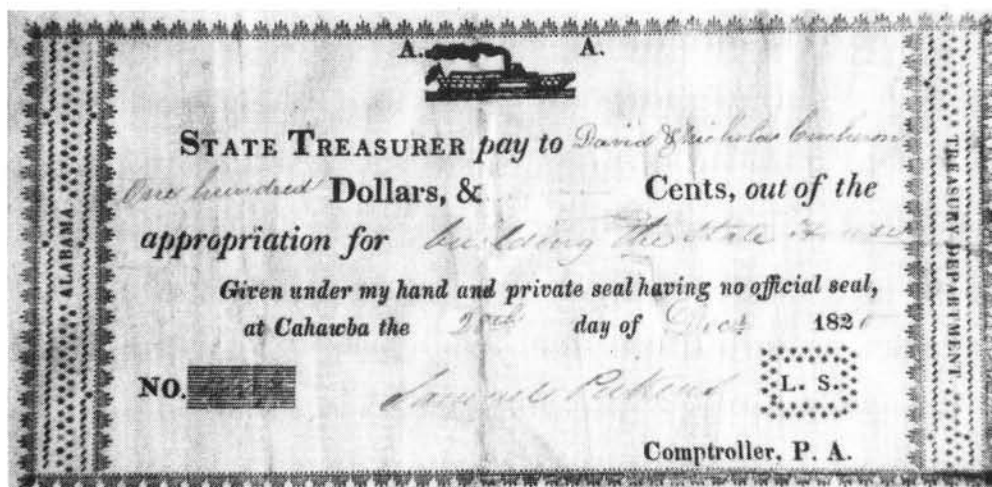 A. A.
STATE TREASURER pay to David & Nicholas
One hundred Dollars, & Cents, out of the
appropriation for building the State House
Given under my hand and private seal having no official seal,
at Cahawba the day of Decr 182
NO. Samuel Pickens L. S.
Comptroller, P. A.
ALABAMA
TREASURY DEPARTMENT.